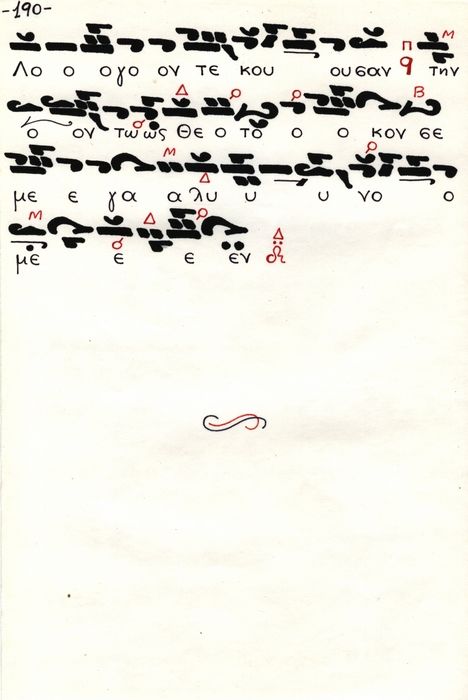 -190-
Λο ο ογο ον τε κου ουσαν την
ο ον τω ως Θε ο το ο ο κον σε
με ε γα α λυ υ υ νο ο
με ε ε εν